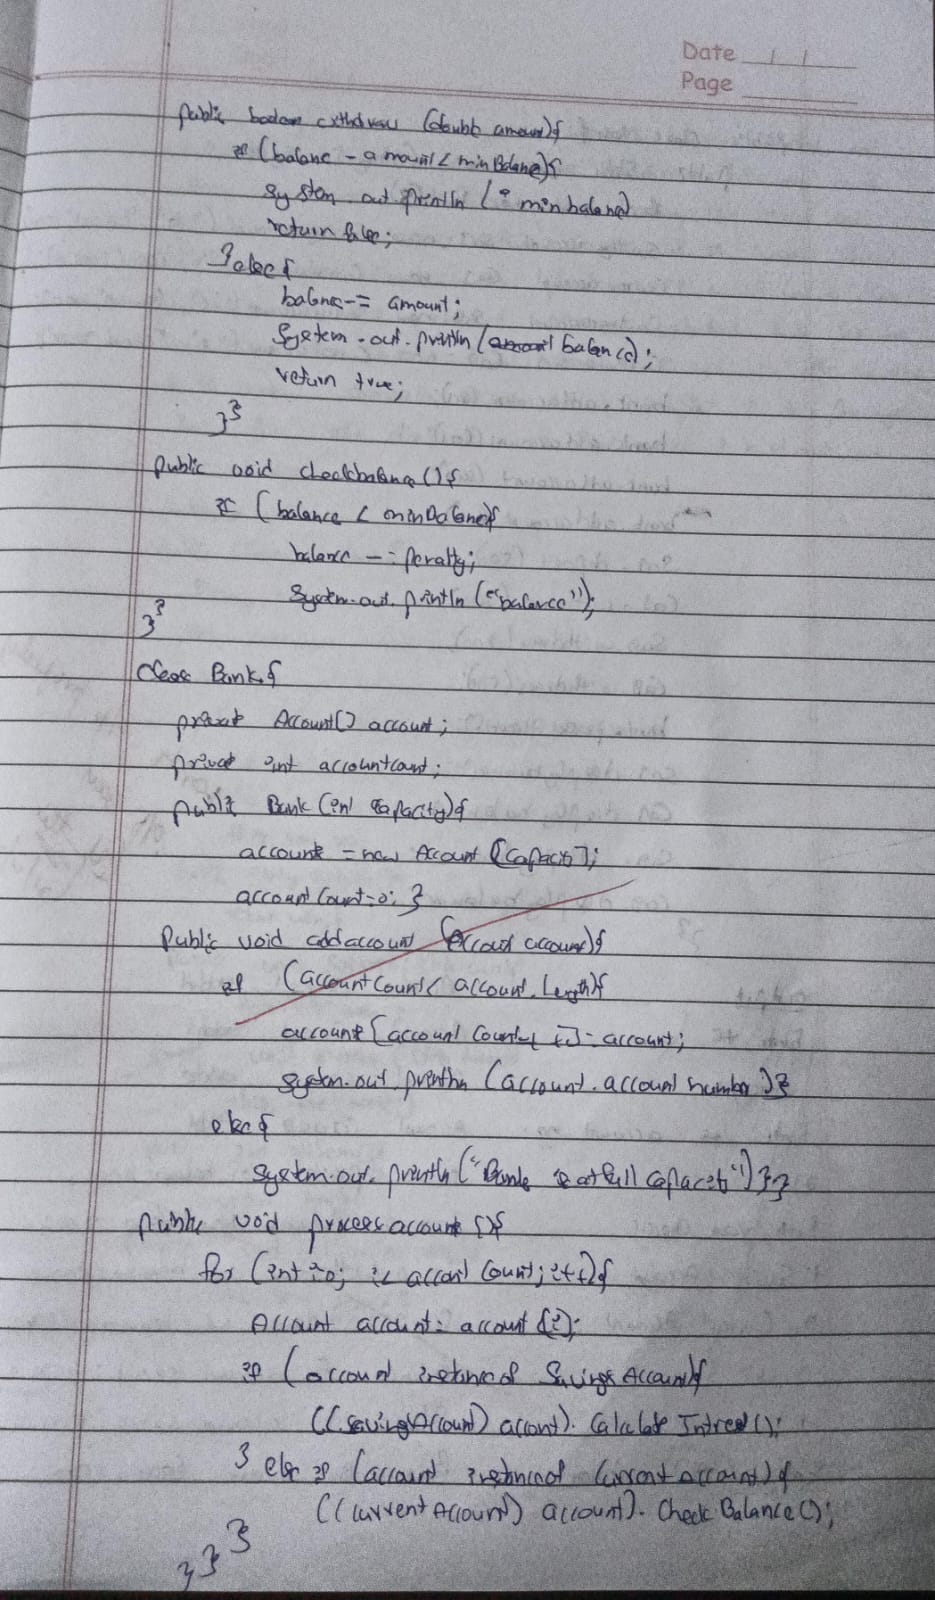 Date / /
Page
public boolean withdraw (double amount){
if (balance - amount < minBalane){
System out println (" minbalane)
return false;
}else{
balance -= amount;
System.out.println ( balance);
return true;
}}
public void checkbalance (){
if (balance < minBalane){
balance -= Penalty;
System.out.println ("balance");
}}
Class Bank{
private Account[] account;
private int accountcount;
public Bank (int capacity){
accounts = new Account [Capacity];
account Count=0; }
Public void addaccount (Account account){
if (accountCount < account.length){
accounts [account Count++] = account;
System.out.println (account.account number)}
else{
System.out.println ("Bank is at full Capacity")}}
public void process accounts (){
for (int i=0; i< account Count; i++){
Account account = account [i];
if (account instanceof Savings Account){
((SavingAccount) account). Calculate Intrest();
} else if (account instanceof Current account){
((Current Account) account). Check Balance();
}}}